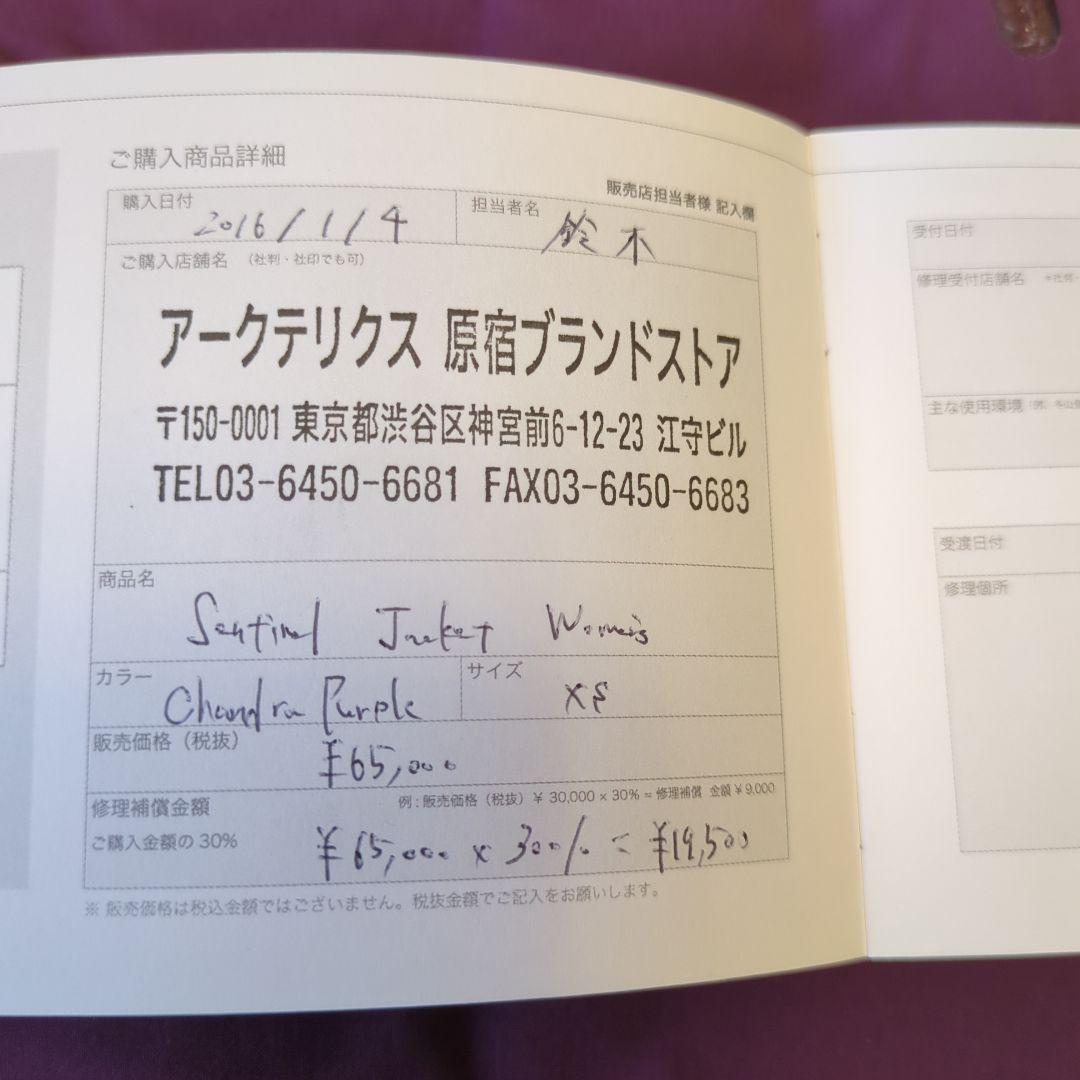 ご購入商品詳細
販売店担当者様 記入欄
購入日付 2016/1/4 担当者名 鈴木
ご購入店舗名 (社判・社印でも可)
アークテリクス 原宿ブランドストア
〒150-0001 東京都渋谷区神宮前6-12-23 江守ビル
TEL03-6450-6681 FAX03-6450-6683
商品名
Sentinel Jacket Women's
カラー Chandra Purple サイズ XS
販売価格(税抜)
¥65,000
修理補償金額 例:販売価格(税抜)¥ 30,000 × 30% = 修理補償 金額 ¥ 9,000
ご購入金額の30% ¥65,000 x 30% = ¥19,500
※ 販売価格は税込金額ではございません。税抜金額でご記入をお願いします。
受付日付
修理受付店舗名
主な使用環境
受渡日付
修理個所